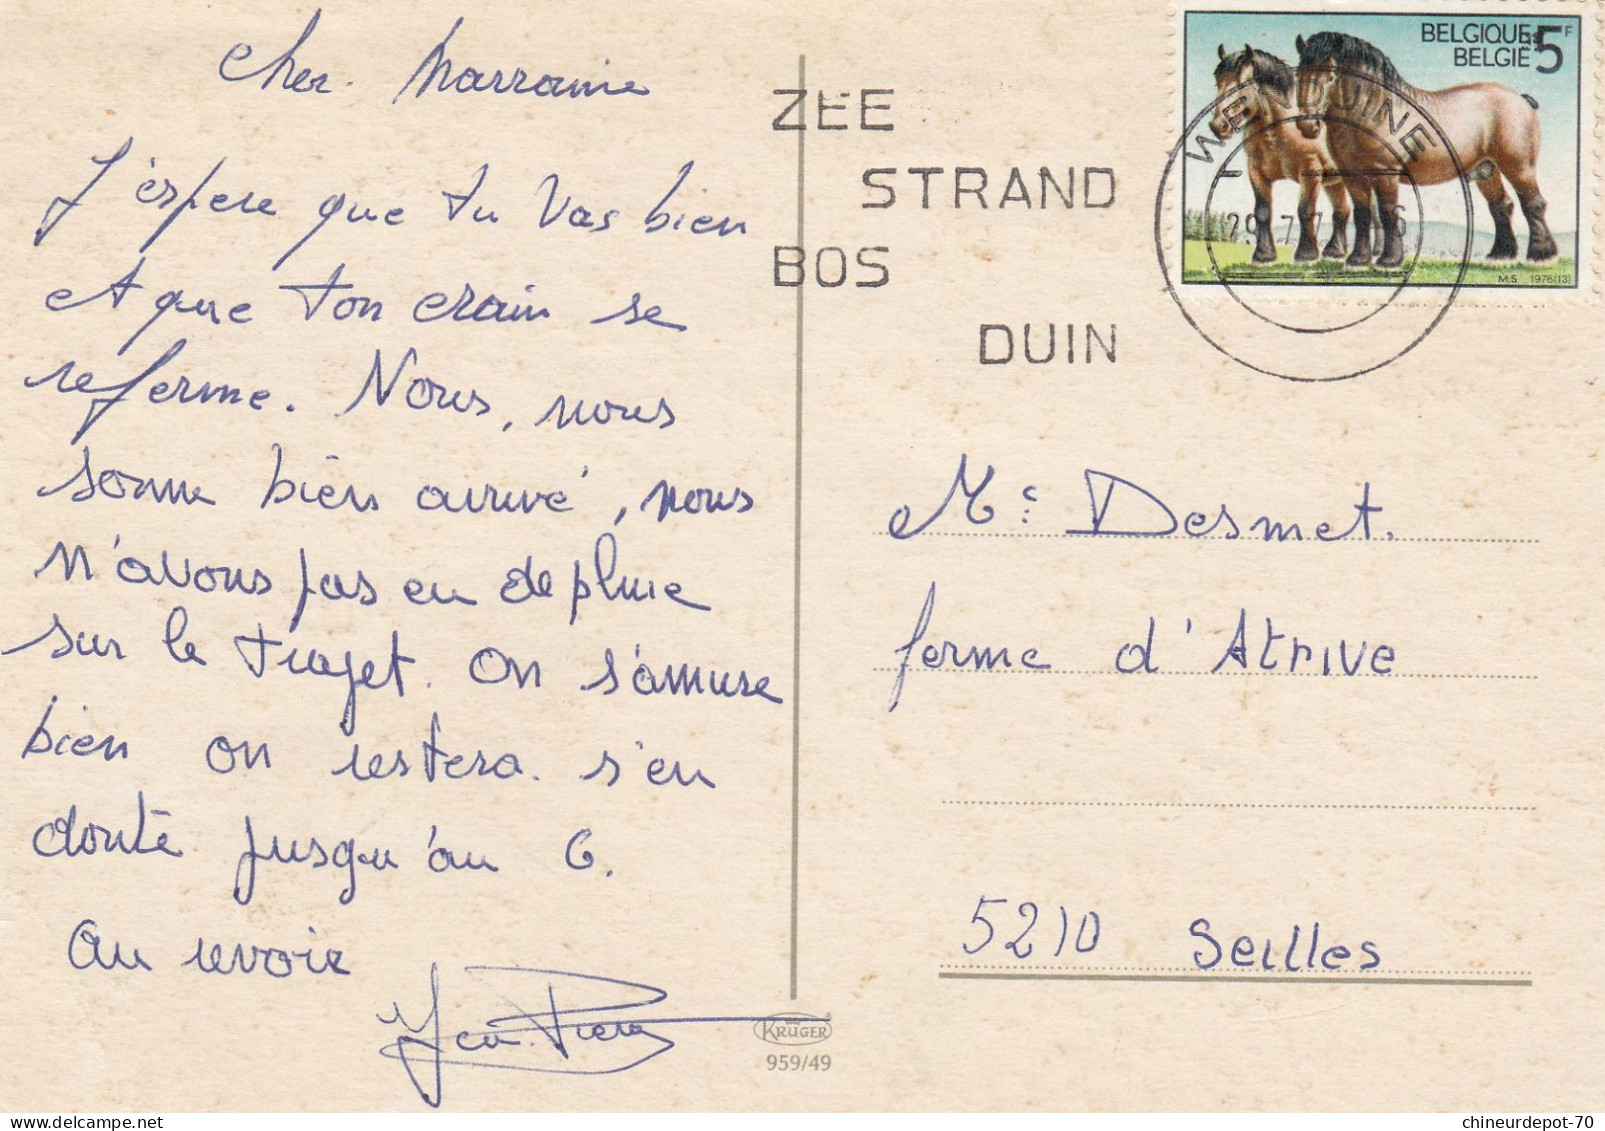 Cher. Marraine
J'éspere que tu vas bien
et que ton crain se
referme. Nous, nous
somme bien arrivé, nous
n'avons pas eu de pluie
sur le trajet. On s'amuse
bien on restera s'en
doute jusqu'au 6.
Au revoir
Jean-Pierre
ZEE
STRAND
BOS
DUIN
BELGIQUE 5F
BELGIË
M.S. 1976(13)
WENDUINE
29 7 7
Me Desmet.
ferme d'Atrive
5210 Seilles
KRÜGER
959/49
chineurdepot-70